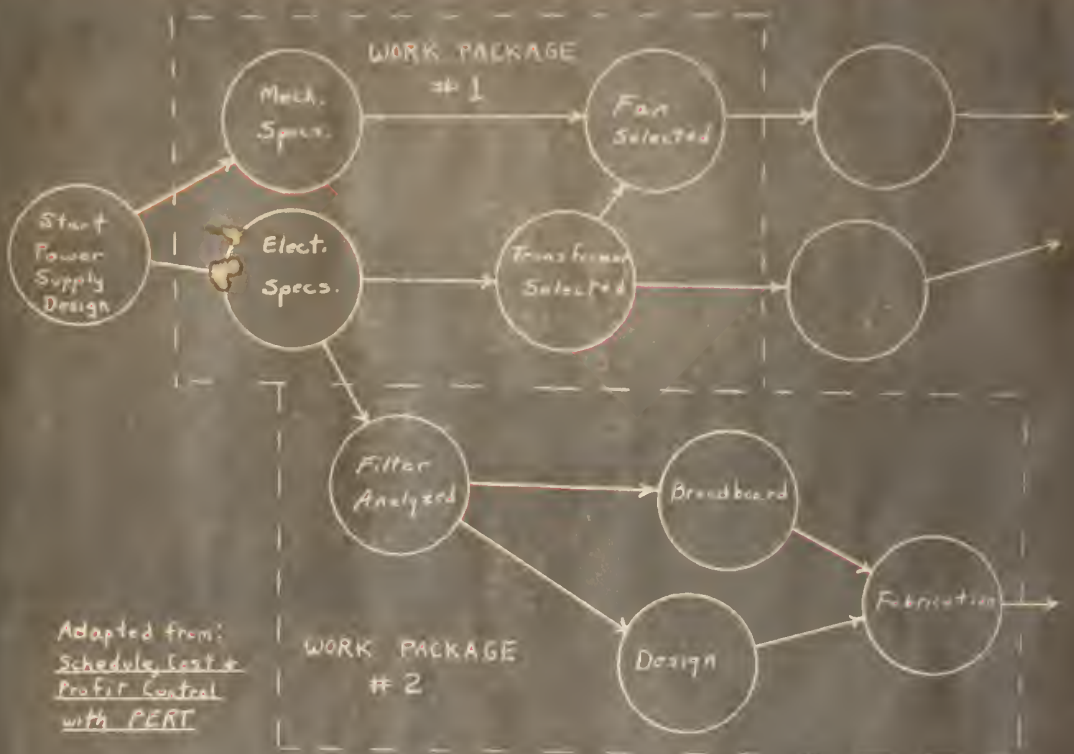 WORK PACKAGE
# 1
Mech.
Specs.
Fan
Selected
Start
Power
Supply
Design
Elect.
Specs.
Transformer
Selected
Filter
Analyzed
Breadboard
Fabrication
Design
WORK PACKAGE
# 2
Adapted from:
Schedule, Cost &
Profit Control
with PERT